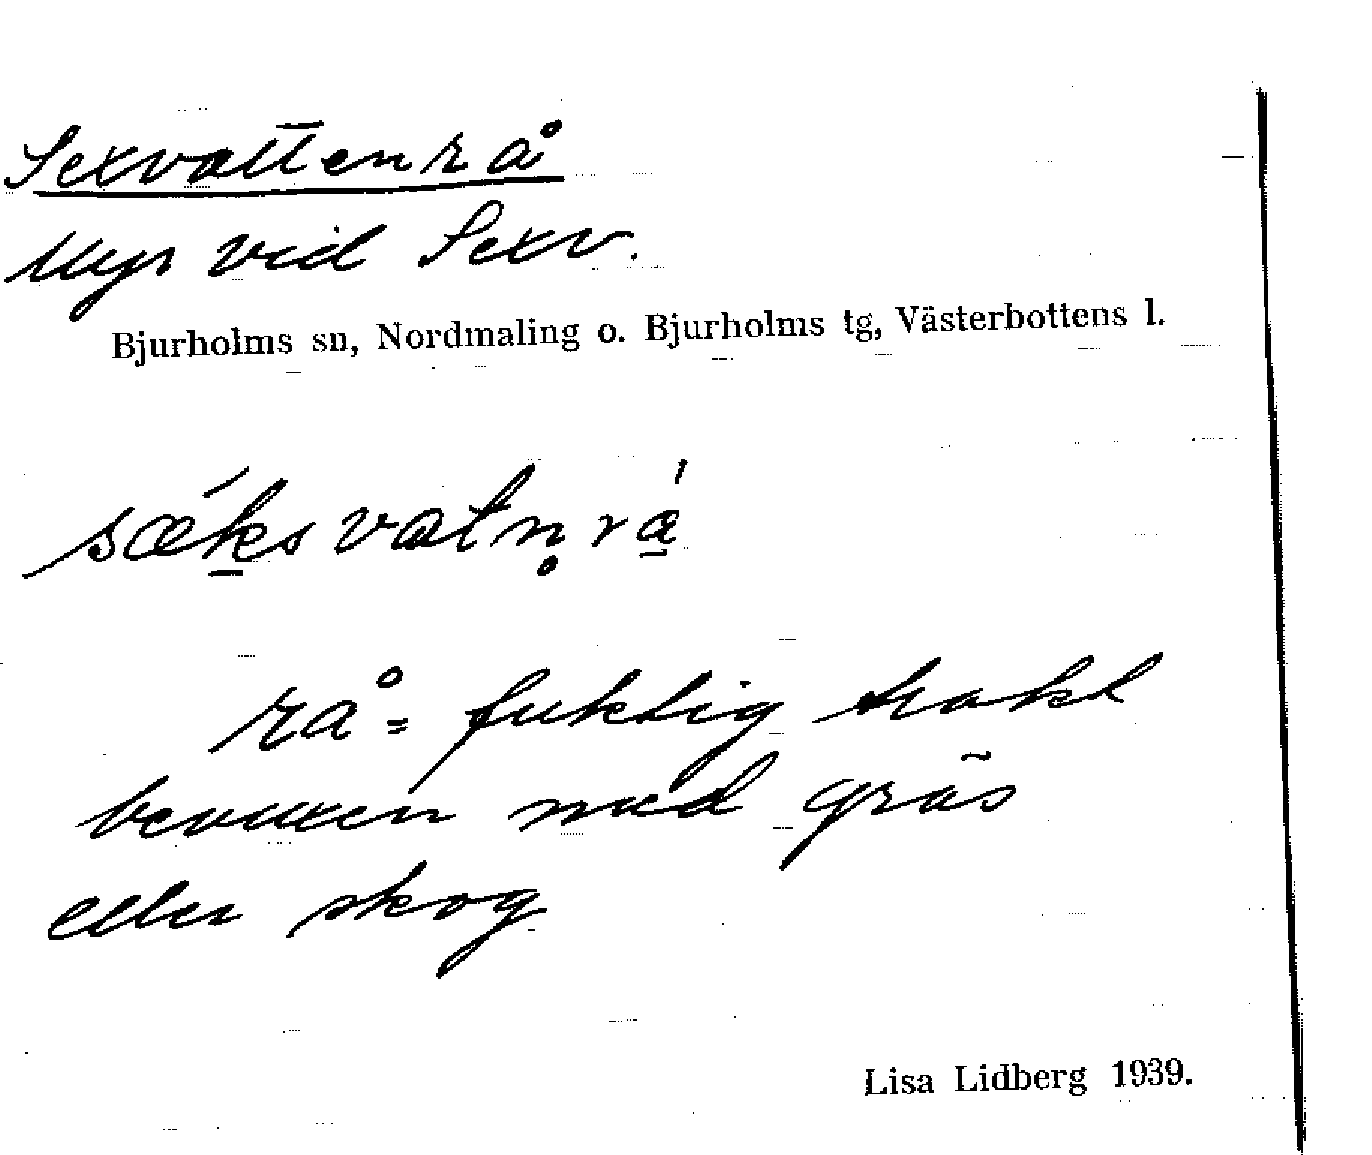 Sexvattenrå
Myr vid Sexv.
Bjurholms sn, Nordmaling o. Bjurholms tg, Västerbottens l.
sæksvatn̥rá̱
rå = fuktig trakt
bevuxen med gräs
eller skog
Lisa Lidberg 1939.